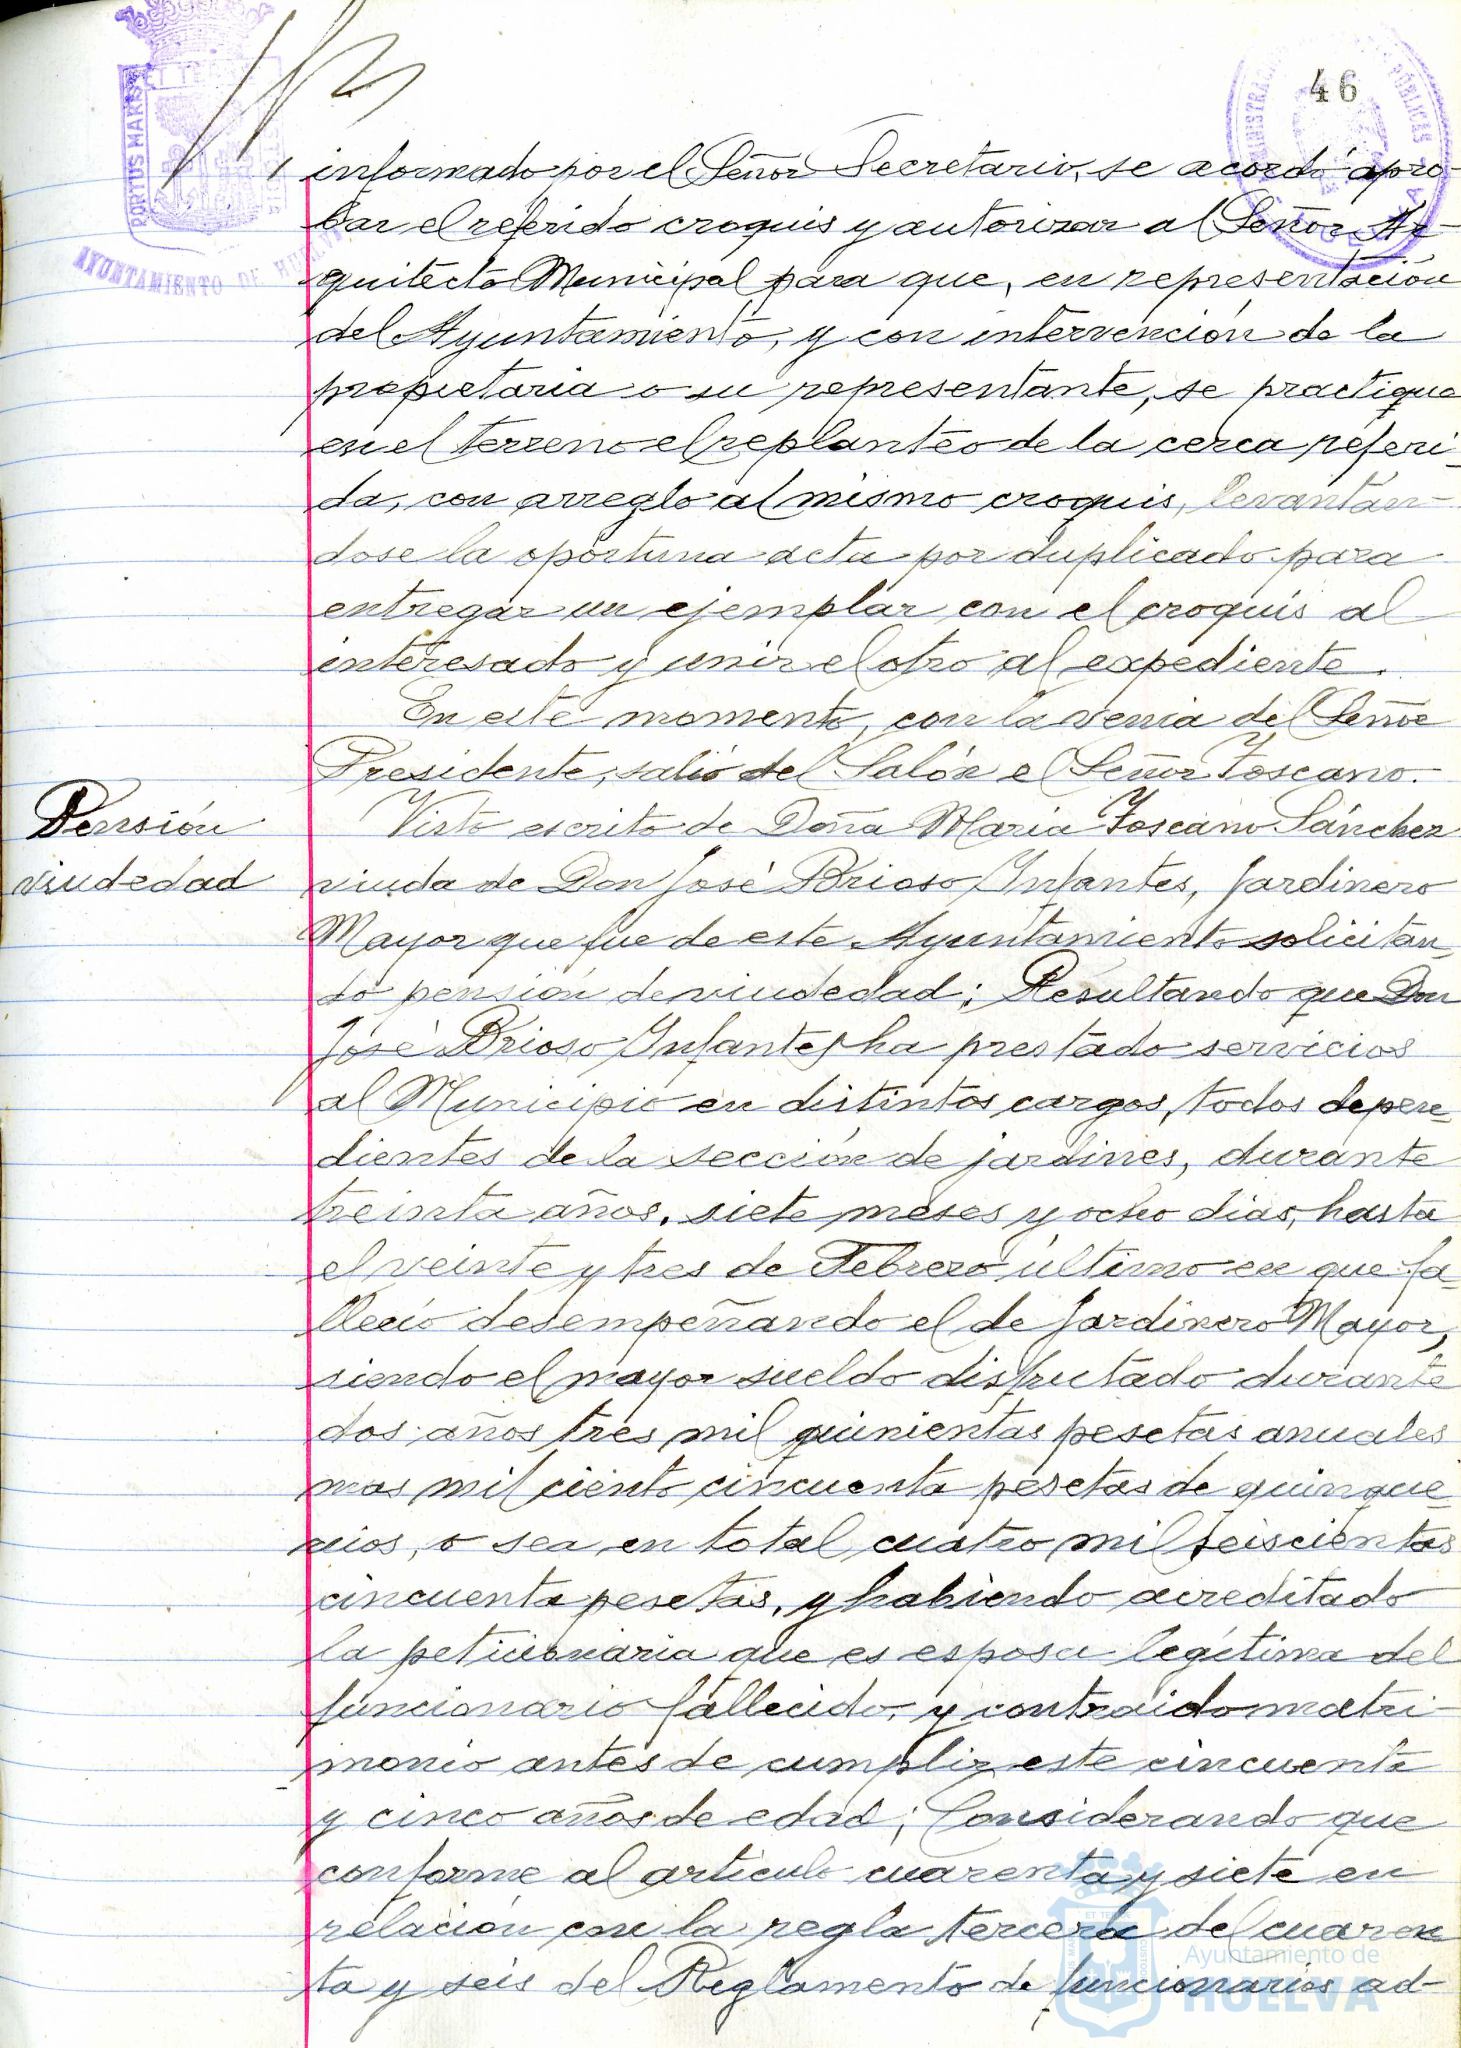 46
PORTUS MARIS
ET TERRÆ
AYUNTAMIENTO DE HUELVA
informado por el Señor Secretario, se acordó apro-
bar el referido croquis y autorizar al Señor Ar-
quitecto Municipal para que, en representación
del Ayuntamiento, y con intervención de la
propietaria o su representante, se practique
en el terreno el replanteo de la cerca referi-
da, con arreglo al mismo croquis, levantán-
dose la oportuna acta por duplicado para
entregar un ejemplar con el croquis al
interesado y unir el otro al expediente.
En este momento, con la venia del Señor
Presidente, salió del Salón el Señor Toscano.
Pensión
viudedad
Visto escrito de Doña Maria Toscano Sánchez
viuda de Don José Brioso Infantes, Jardinero
Mayor que fue de este Ayuntamiento solicitan-
do pensión de viudedad; Resultando que Don
José Brioso Infantes ha prestado servicios
al Municipio en distintos cargos, todos depen-
dientes de la sección de jardines, durante
treinta años, siete meses y ocho dias, hasta
el veinte y tres de Febrero último en que fa-
lleció desempeñando el de Jardinero Mayor,
siendo el mayor sueldo disfrutado durante
dos años tres mil quinientas pesetas anuales
mas mil ciento cincuenta pesetas de quinque-
nios, o sea en total cuatro mil seiscientas
cincuenta pesetas, y habiendo acreditado
la peticionaria que es esposa legítima del
funcionario fallecido, y contraido matri-
monio antes de cumplir este cincuenta
y cinco años de edad; Considerando que
conforme al articulo cuarenta y siete en
relación con la regla tercera del cuaren-
ta y seis del Reglamento de funcionarios ad-
Ayuntamiento de
HUELVA